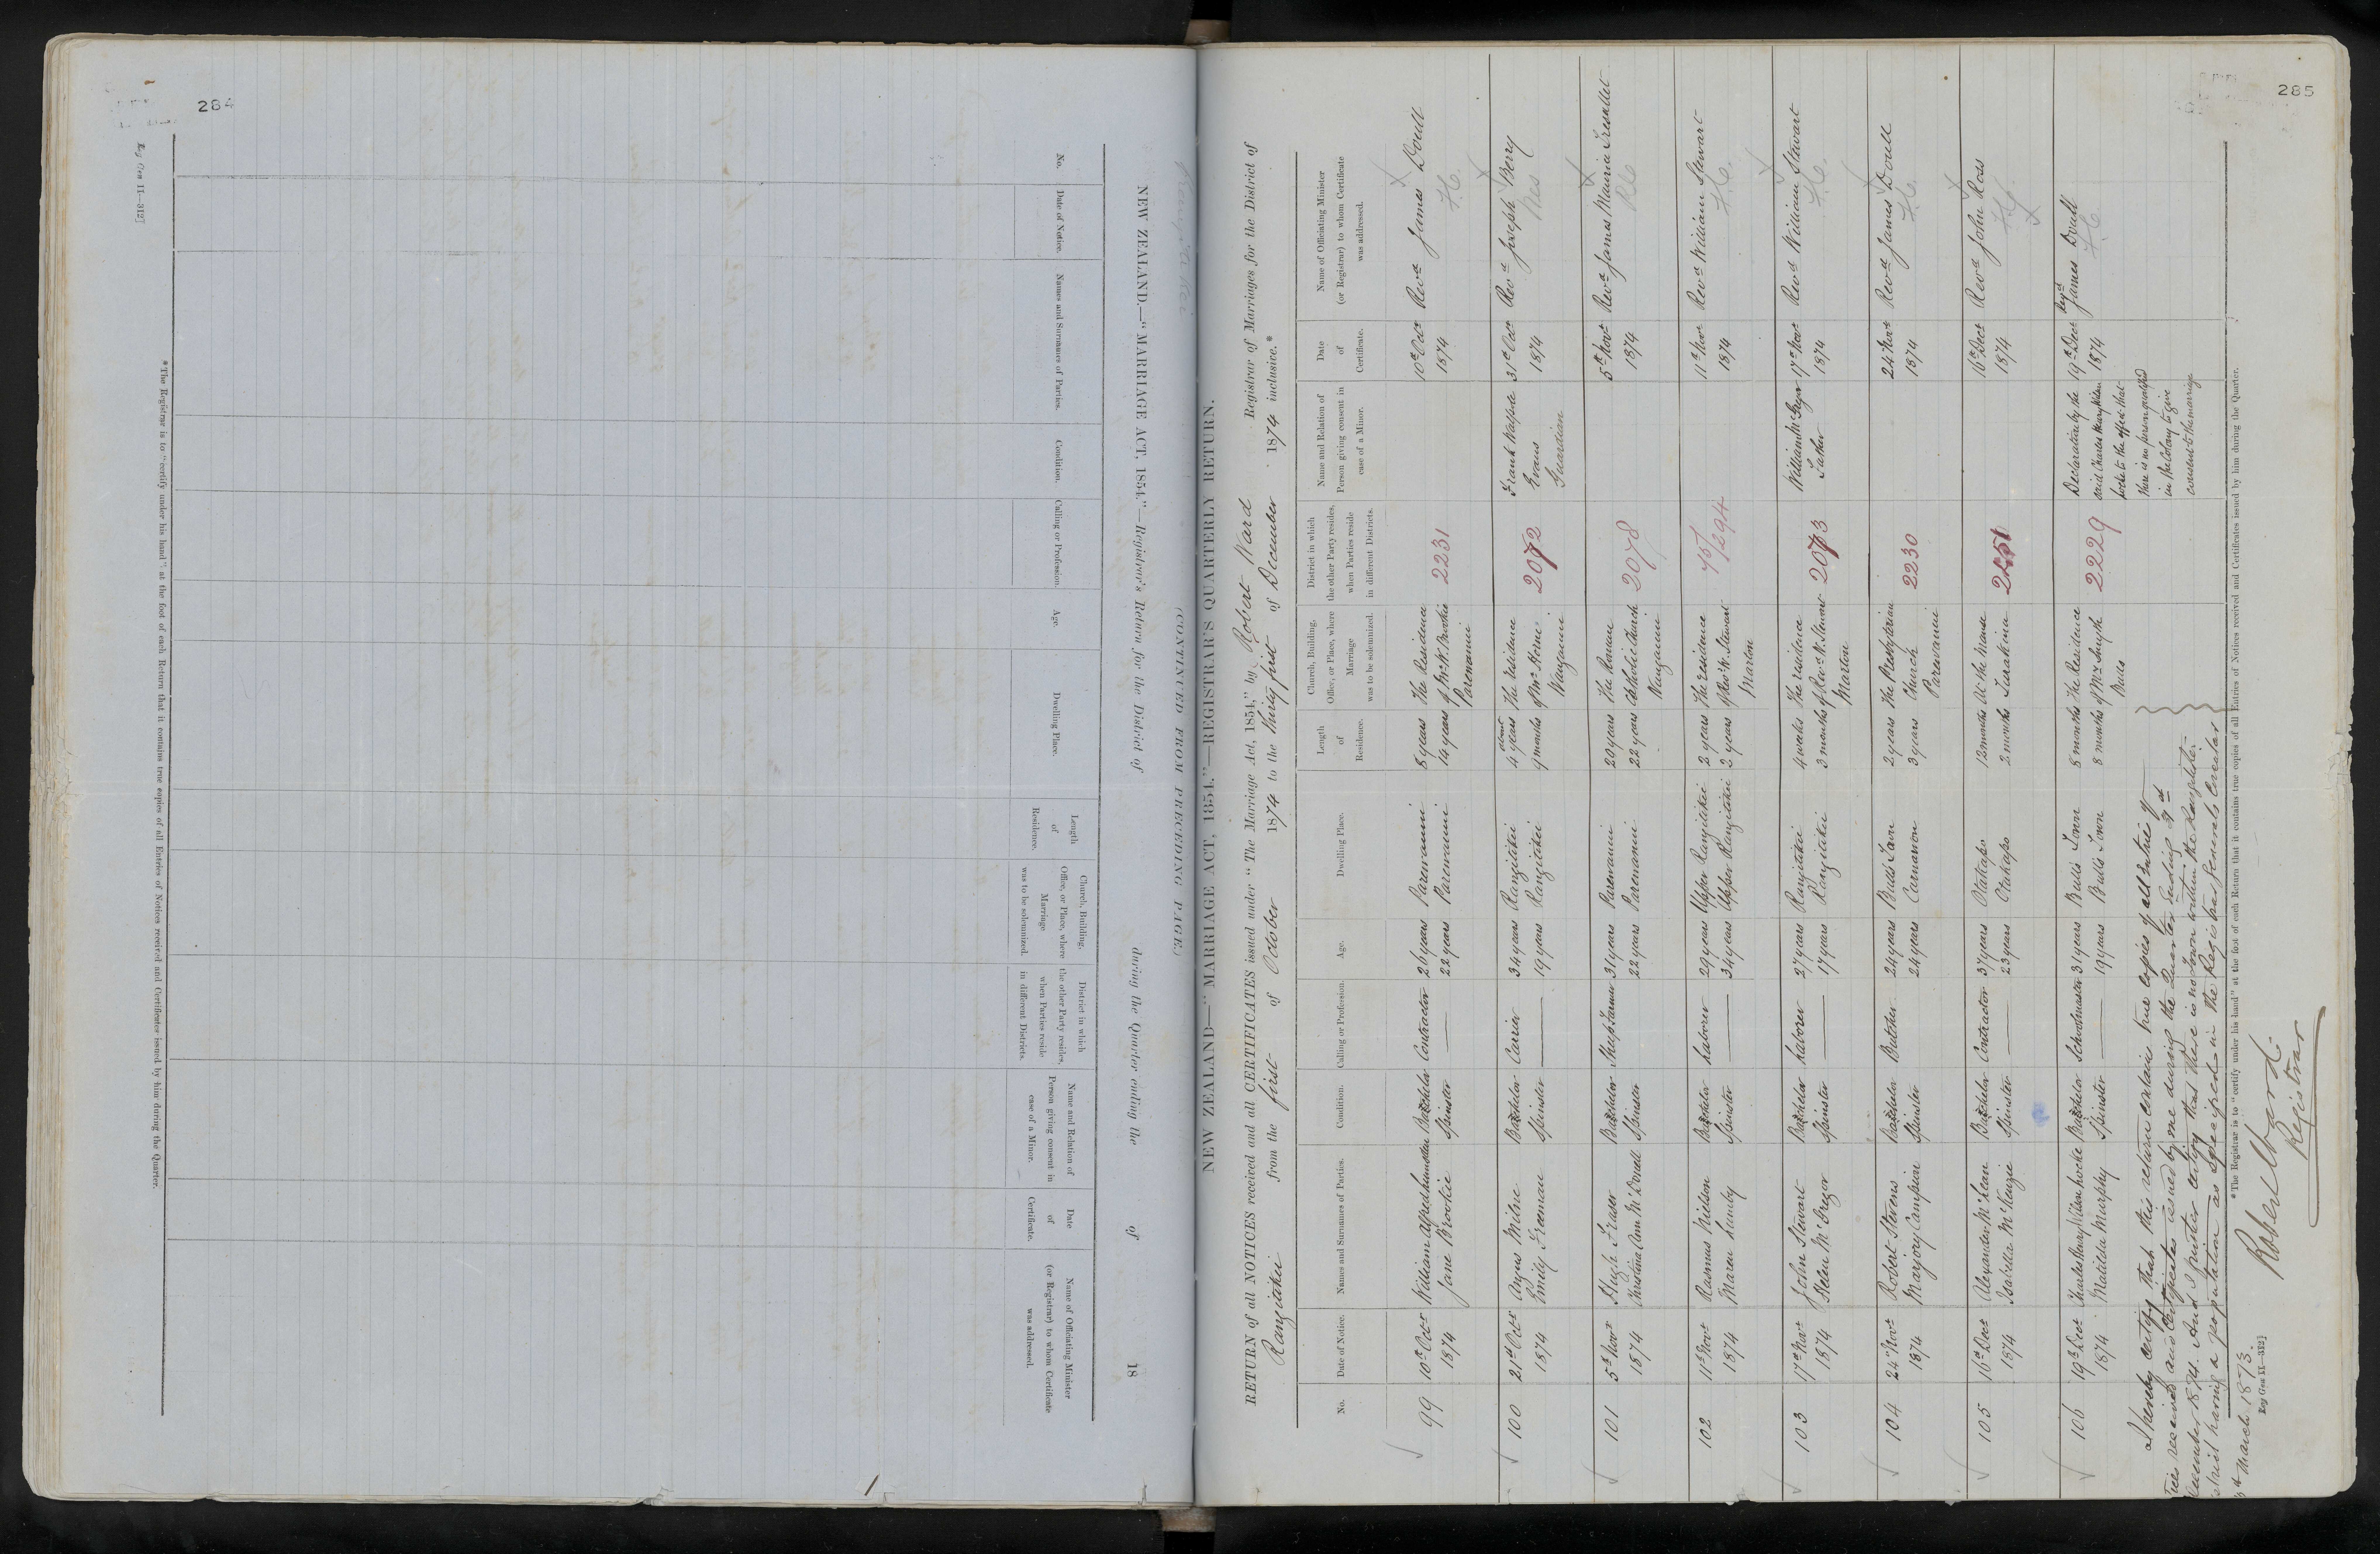 284
Reg Gen 11—312]
NEW ZEALAND.—"MARRIAGE ACT, 1854."—Registrar's Return for the District of during the Quarter ending the of 18
(CONTINUED FROM PRECEDING PAGE.)
No.
Date of Notice.
Names and Surnames of Parties.
Condition.
Calling or Profession.
Age.
Dwelling Place.
Length of Residence.
Church, Building, Office, or Place, where Marriage was to be solemnized.
District in which the other Party resides, when Parties reside in different Districts.
Name and Relation of Person giving consent in case of a Minor.
Date of Certificate.
Name of Officiating Minister (or Registrar) to whom Certificate was addressed.
*The Registrar is to "certify under his hand" at the foot of each Return that it contains true copies of all Entries of Notices received and Certificates issued by him during the Quarter.
285
NEW ZEALAND—"MARRIAGE ACT, 1854."—REGISTRAR'S QUARTERLY RETURN.
RETURN of all NOTICES received and all CERTIFICATES issued under "The Marriage Act, 1854," by Robert Ward Registrar of Marriages for the District of
Rangitikei from the first of October 1874 to the thirty first of December 1874 inclusive.*
No.
Date of Notice.
Names and Surnames of Parties.
Condition.
Calling or Profession.
Age.
Dwelling Place.
Length of Residence.
Church, Building, Office, or Place, where Marriage was to be solemnized.
District in which the other Party resides, when Parties reside in different Districts.
Name and Relation of Person giving consent in case of a Minor.
Date of Certificate.
Name of Officiating Minister (or Registrar) to whom Certificate was addressed.
99 10th Octr William Alfred Bachelor Contractor 26 years Parewanui 8 years The Residence 10th Octr Revd James Doull
1874 Jane Brookie Spinster — 22 years Parewanui 14 years of Mr W. Brookie 2231 1874 F.C.
Parewanui
100 21st Octr Angus Milne Bachelor Carrier 34 years Rangitikei about 4 years The residence Frank Walpole 31st Octr Revd Joseph Berry
1874 Emily Freeman Spinster — 19 years Rangitikei 9 months of Mr Horne 2072 Evans 1874 Wes
Wanganui Guardian
101 5th Novr Hugh Fraser Bachelor Sheepfarmer 31 years Parewanui 20 years The Roman 5th Novr Revd James Mauria Tresallet
1874 Christina Ann McDonell Spinster 22 years Parewanui 22 years Catholic Church 2078 1874 RC
Wanganui
102 11th Novr Rasmus Nielson Bachelor Laborer 29 years Upper Rangitikei 2 years The residence 75/1294 11th Novr Revd William Stewart
1874 Maren Lumby Spinster — 34 years Upper Rangitikei 2 years of Revd W. Stewart 1874 F.C.
Marton
103 17th Novr John Stewart Bachelor Laborer 27 years Rangitikei 4 weeks The residence William McGregor 17th Novr Revd William Stewart
1874 Helen McGregor Spinster — 17 years Rangitikei 3 months of Revd W. Stewart 2073 Father 1874 F.C.
Marton
104 24th Novr Robert Stevens Bachelor Butcher 24 years Bulls Town 2 years The Presbyterian 24 Novr Revd James Doull
1874 Marjory Campion Spinster 24 years Carnarvon 3 years Church 2230 1874 F.C.
Parewanui
105 16th Decr Alexander McLean Bachelor Contractor 37 years Otakapo 12 months At the Manse 16th Decr Revd John Ross
1874 Isabella McKenzie Spinster — 23 years Otakapo 2 months Turakina 1874
106 19th Decr Charles Henry Wilson Locke Bachelor Schoolmaster 31 years Bulls Town 8 months The Residence Declaration by the 19th Decr Revd James Doull
1874 Matilda Murphy Spinster — 19 years Bulls Town 8 months of Mr Smyth 2229 said Charles Henry Wilson 1874 F.C.
Bulls Locke to the effect that
there is no person qualified
in the Colony to give
consent to the marriage
I hereby certify that this return contains true copies of all entries of
received and Certificates issued by me during the Quarter ending 31st
December 1874. And I further certify that there is no Town within the Rangitikei
having a population as specified in the Registrar Generals Circular
March 1873.
Robert Ward.
Registrar
*The Registrar is to "certify under his hand" at the foot of each Return that it contains true copies of all Entries of Notices received and Certificates issued by him during the Quarter.
Reg Gen 11—312]